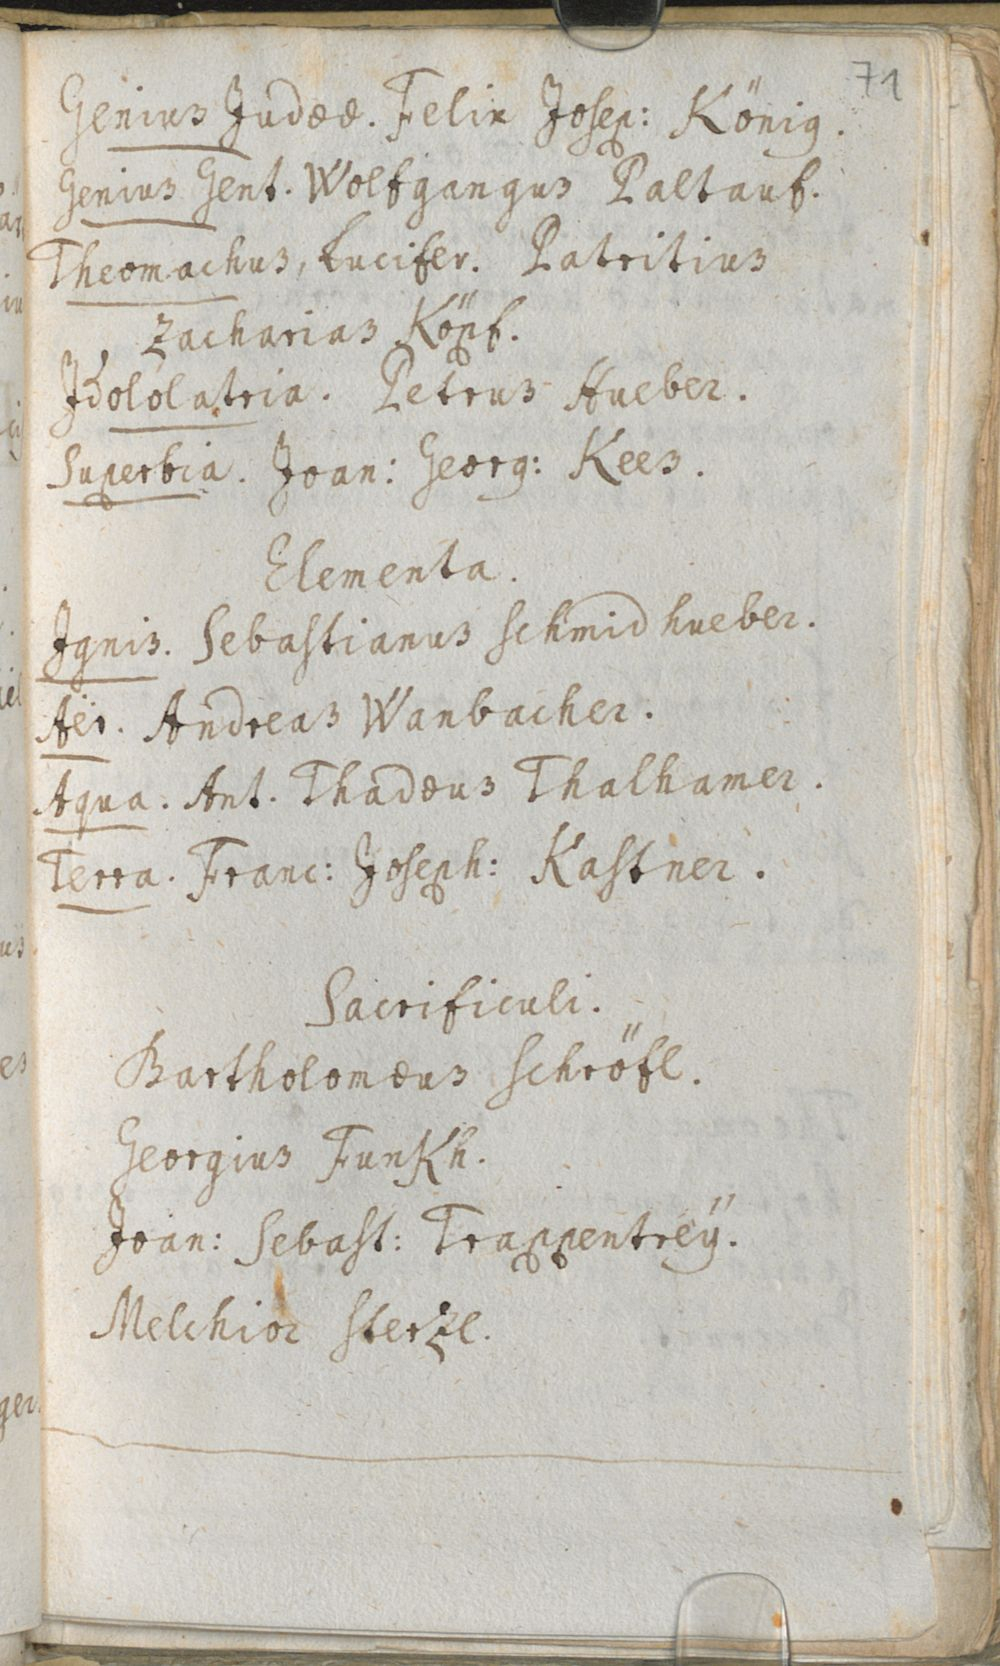 71
Genius Judææ. Felix Josep: König.
Genius Gent. Wolfgangus Paltauf.
Theomachus, Lucifer. Patritius
Zacharias Köpf.
Idololatria. Petrus Hueber.
Superbia. Joan: Georg: Kees.
Elementa.
Ignis. Sebastianus Schmidhueber.
Aër. Andreas Wanbacher.
Aqua. Ant. Thadæus Thalhamer.
Terra. Franc: Joseph: Kastner.
Sacrificuli.
Bartholomæus Schröfl.
Georgius Funkh.
Joan: Sebast: Trappentreÿ.
Melchior Sterzl.